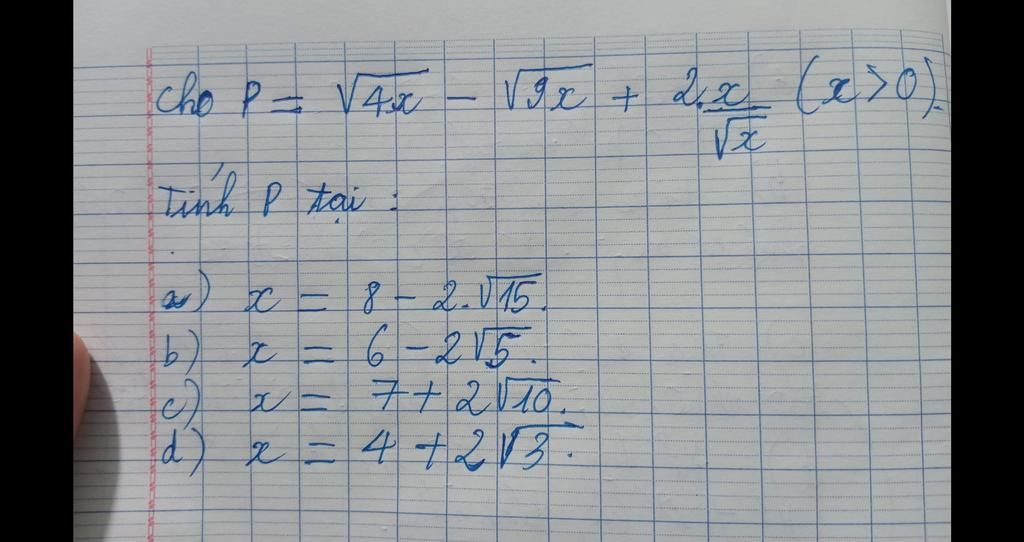 Cho P = √4x − √9x + 2.x/√x (x > 0).
Tính P tại :
a) x = 8 − 2.√15.
b) x = 6 − 2√5.
c) x = 7 + 2√10.
d) x = 4 + 2√3.